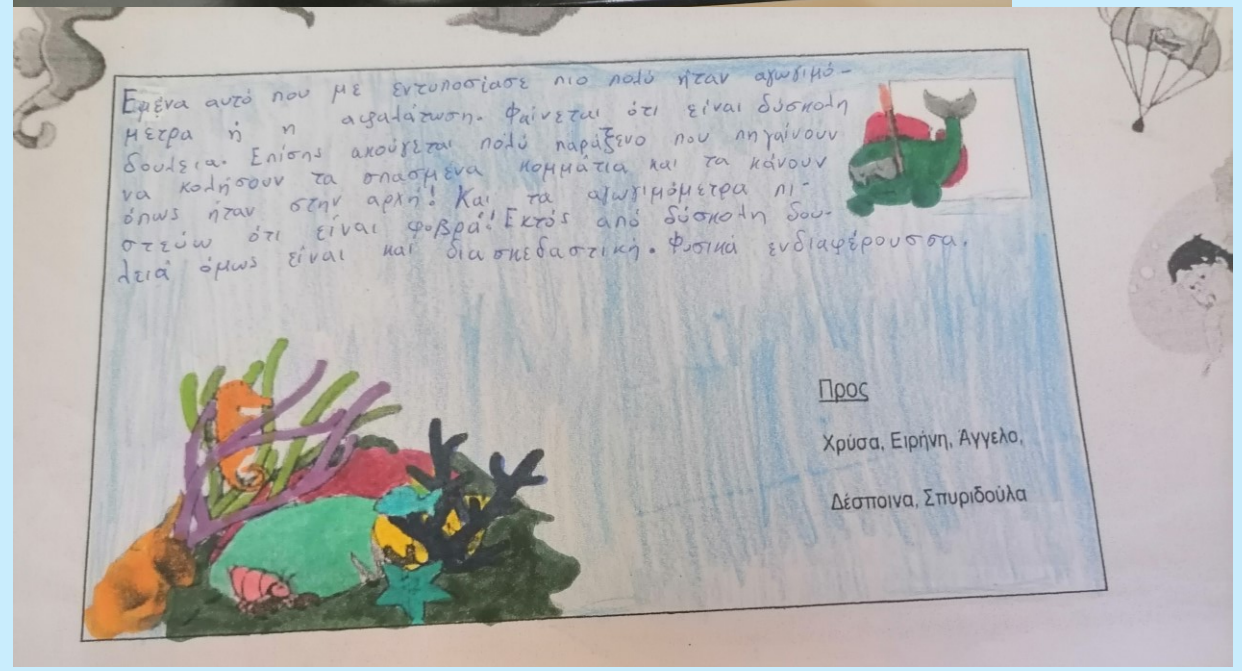 Εμένα αυτό που με εντυποσίασε πιο πολύ ήταν αγωγιμό-
μετρα ή η αφαλάτωση. Φαίνεται ότι είναι δύσκολη
δουλεια. Επίσης ακούγεται πολύ παράξενο που πηγαίνουν
να κολήσουν τα σπασμένα κομμάτια και τα κάνουν
όπως ήταν στην αρχή! Και τα αγωγιμόμετρα πι-
στεύω ότι είναι φοβρά! Εκτός από δύσκολη δου-
λειά όμως είναι και διασκεδαστική. Φυσικά ενδιαφέρουσσα.
Προς
Χρύσα, Ειρήνη, Άγγελο,
Δέσποινα, Σπυριδούλα